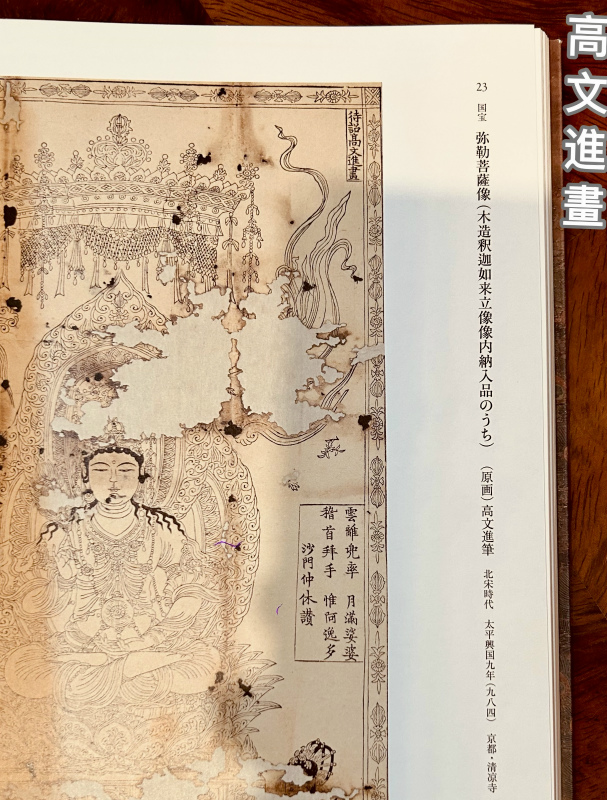 高文進畫
23
国宝
弥勒菩薩像（木造釈迦如来立像像内納入品のうち）
（原画）高文進筆
北宋時代　太平興国九年（九八四）　京都・清凉寺
待詔高文進畫
雲離兜率　月滿娑婆
稽首拜手　惟阿逸多
沙門仲休讃